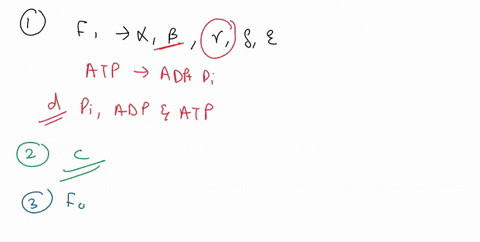 ① F₁ → α, β, γ, δ, ε
ATP → ADP Pi
d Pi, ADP & ATP
② c
③ F₀